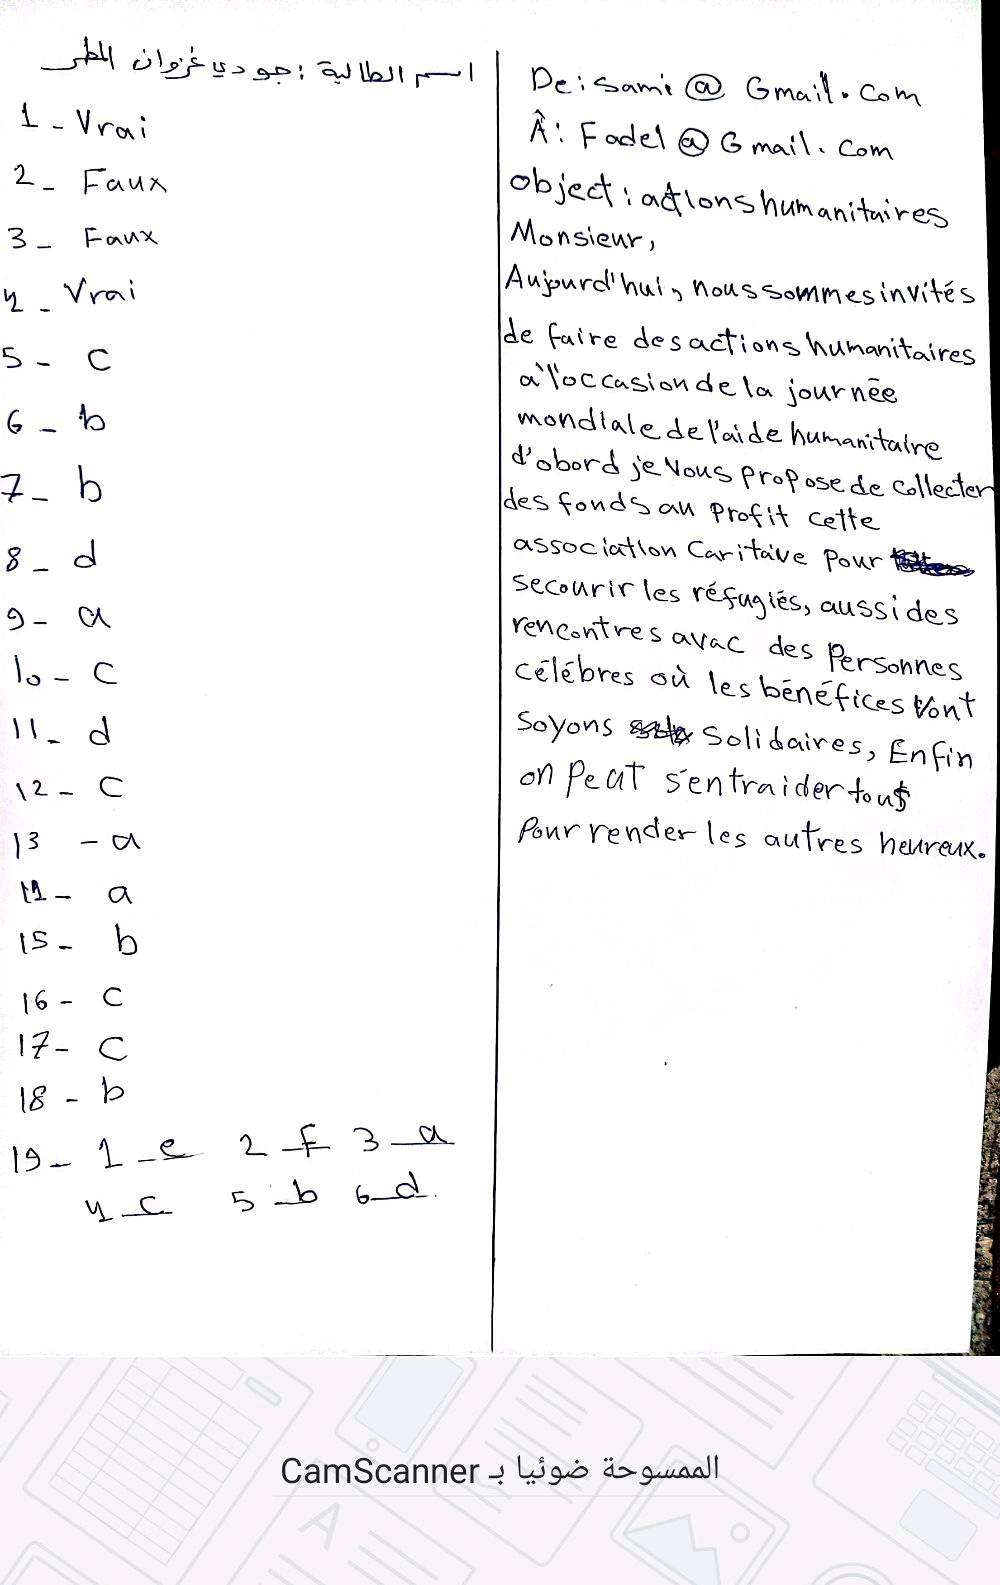 اسم الطالبة : جودي غزوان المطر
1 - Vrai
2 - Faux
3 - Faux
4 - Vrai
5 - c
6 - b
7 - b
8 - d
9 - a
10 - c
11 - d
12 - c
13 - a
14 - a
15 - b
16 - c
17 - c
18 - b
19 - 1 - e 2 - F 3 - a
4 - c 5 - b 6 - d.
De : sami @ Gmail. com
À : Fadel @ Gmail. com
object : actions humanitaires
Monsieur,
Aujourd'hui, nous sommes invités
de faire des actions humanitaires
à l'occasion de la journée
mondiale de l'aide humanitaire
d'obord je vous propose de collecter
des fonds au profit cette
association Caritaive pour
secourir les réfugiés, aussi des
rencontres avac des Personnes
célébres où les bénéfices vont
Soyons Solidaires, Enfin
on peut s'entraider tous
Pour render les autres heureux.
الممسوحة ضوئيا بـ CamScanner